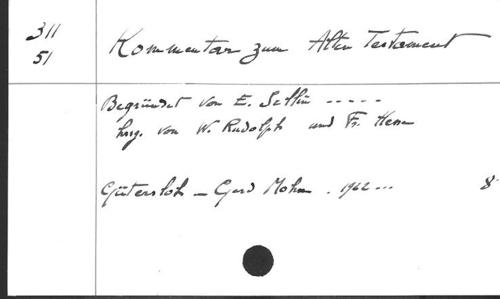 311
51
Kommentar zum Alten Testament
Begründet von E. Sellin -----
hrsg. von W. Rudolph und Fr. Hesse
Gütersloh – Gerd Mohn . 1962 ... 8